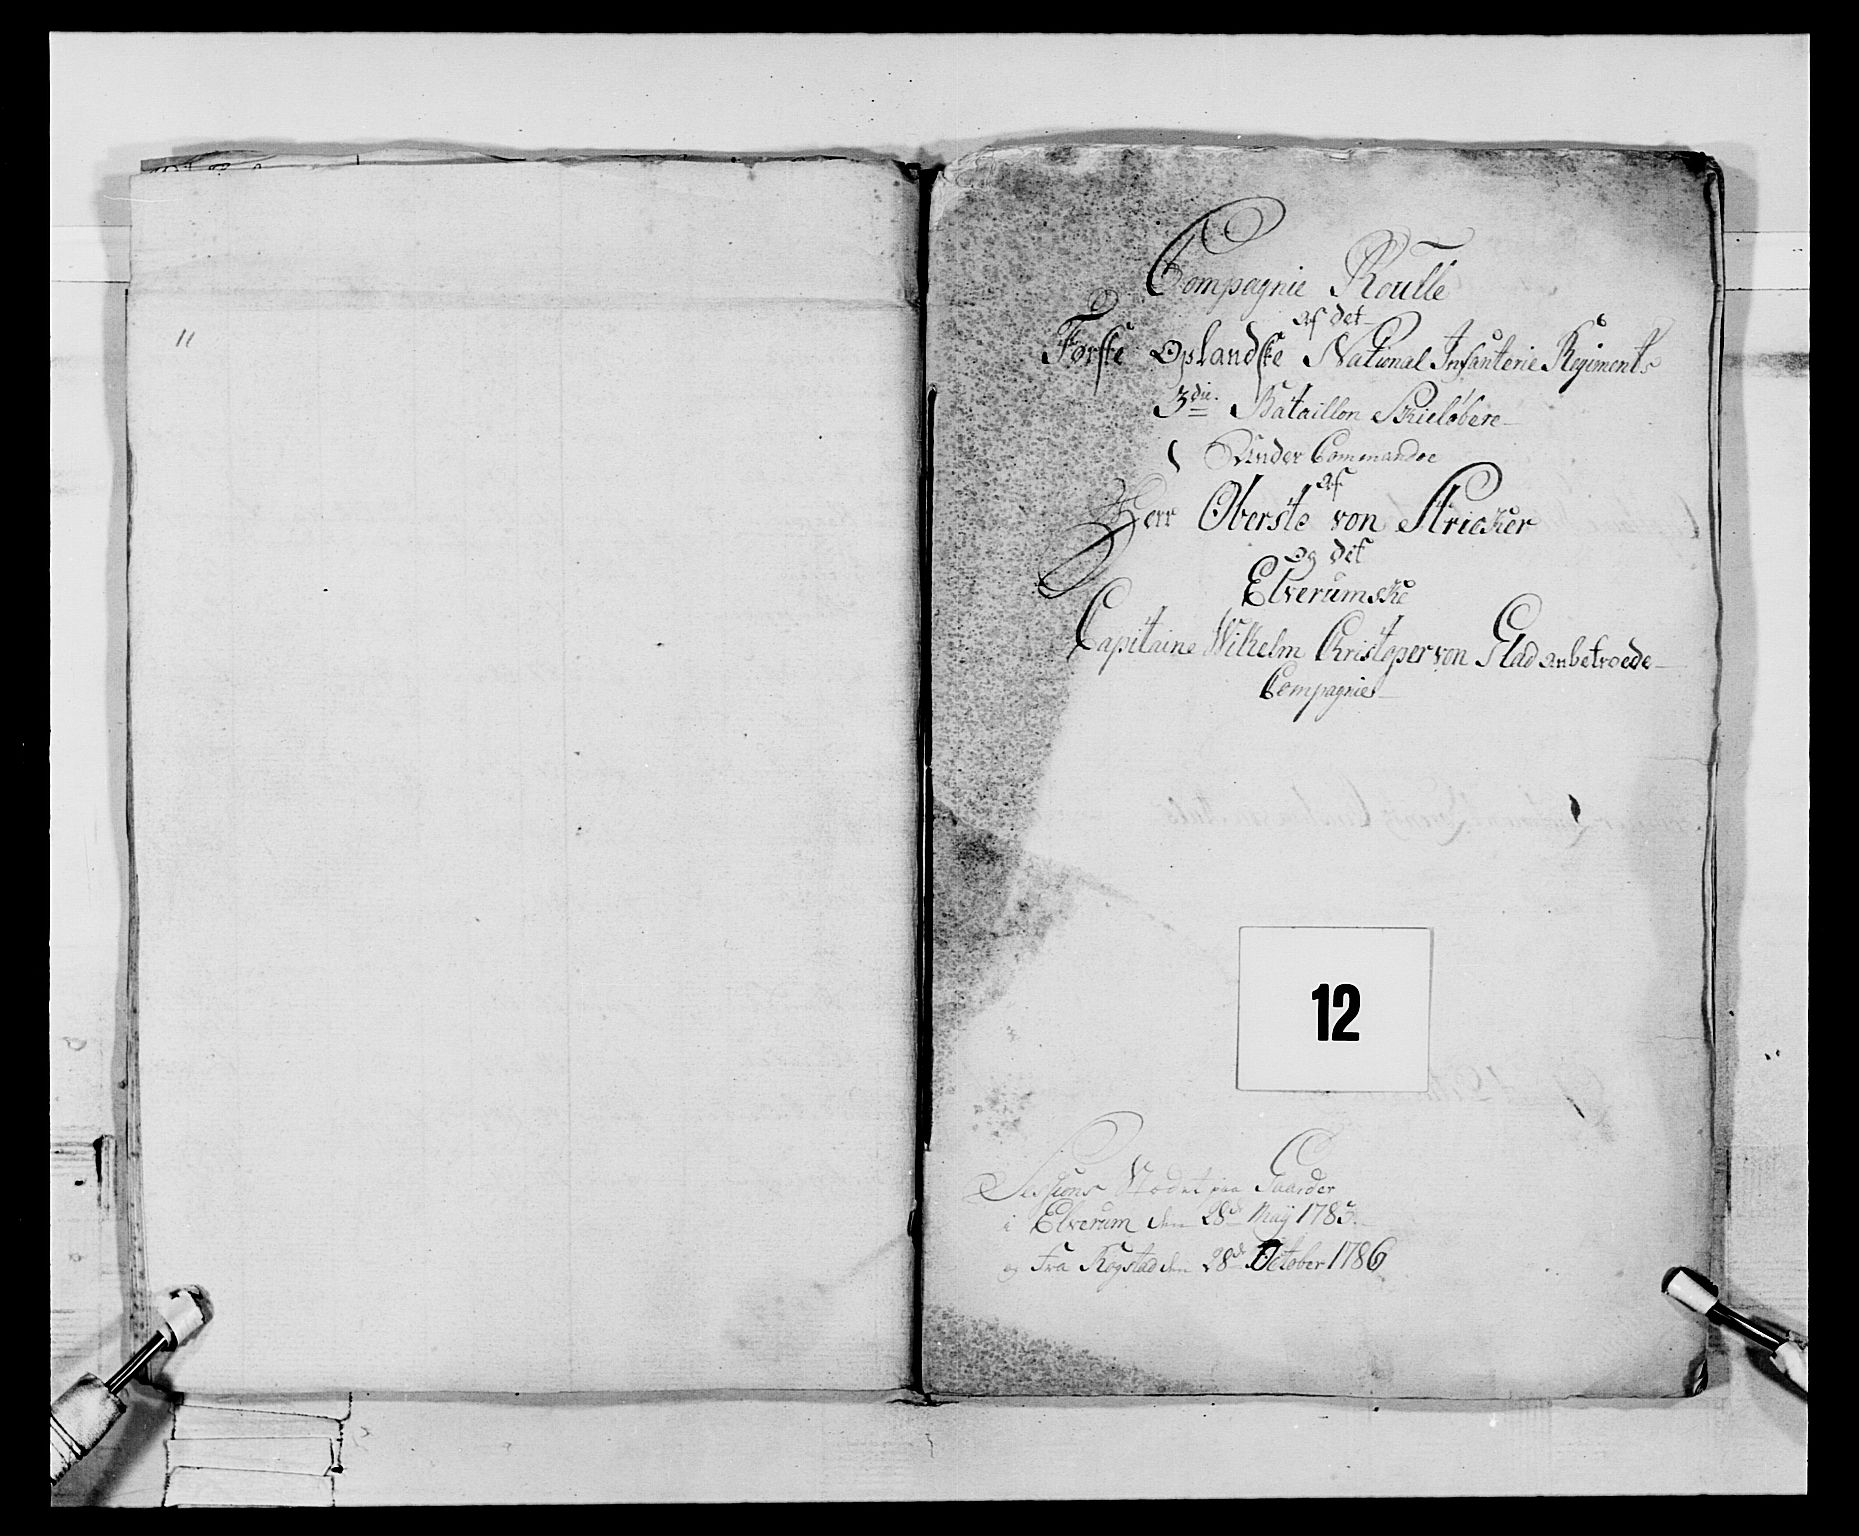 11
Compagnie Roulle
af det
Første Oplandske National Infanterie Regiments
3die Bataillon Skieløbere
Under Commandoe
af
Herr Oberste von Stricker
og det
Elverumske
Capitaine Wilhelm Christoper von Glad anbetroede
Compagnie
12
Sessions Mødet paa Gaarder
i Elverum den 28d Maij 1785.
og Fra Kogstad den 28d October 1786